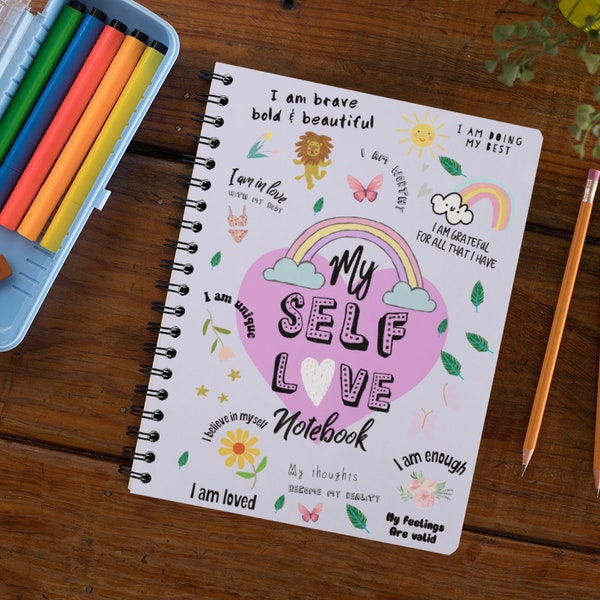 I am brave
bold & beautiful
I AM DOING
MY BEST
I AM WORTHY
I am in love
WITH MY BODY
I AM GRATEFUL
FOR ALL THAT I HAVE
My
SELF
LOVE
Notebook
I am unique
I believe in myself
I am loved
My thoughts
BECOME MY REALITY
I am enough
My feelings
Are valid